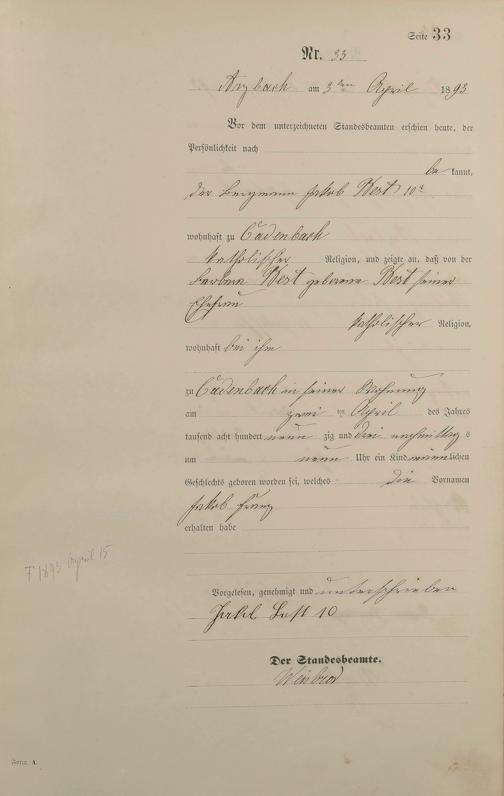 Seite 33
Nr. 33
Arzbach am 3ten April 1893
Vor dem unterzeichneten Standesbeamten erschien heute, der
Persönlichkeit nach
be kannt,
der Bergmann Jakob
wohnhaft zu Cadenbach
katholischer Religion, und zeigte an, daß von der
Barbara geborene seiner
Ehefrau
katholischer Religion,
wohnhaft bei ihm
zu Cadenbach in seiner Wohnung
am zwei ten April des Jahres
tausend acht hundert neun zig und drei s
um neun Uhr ein Kind männlichen
Geschlechts geboren worden sei, welches die Vornamen
Jakob Franz
erhalten habe
† 1893 April 15
Vorgelesen, genehmigt und unterschrieben
10
Der Standesbeamte.
Form A.